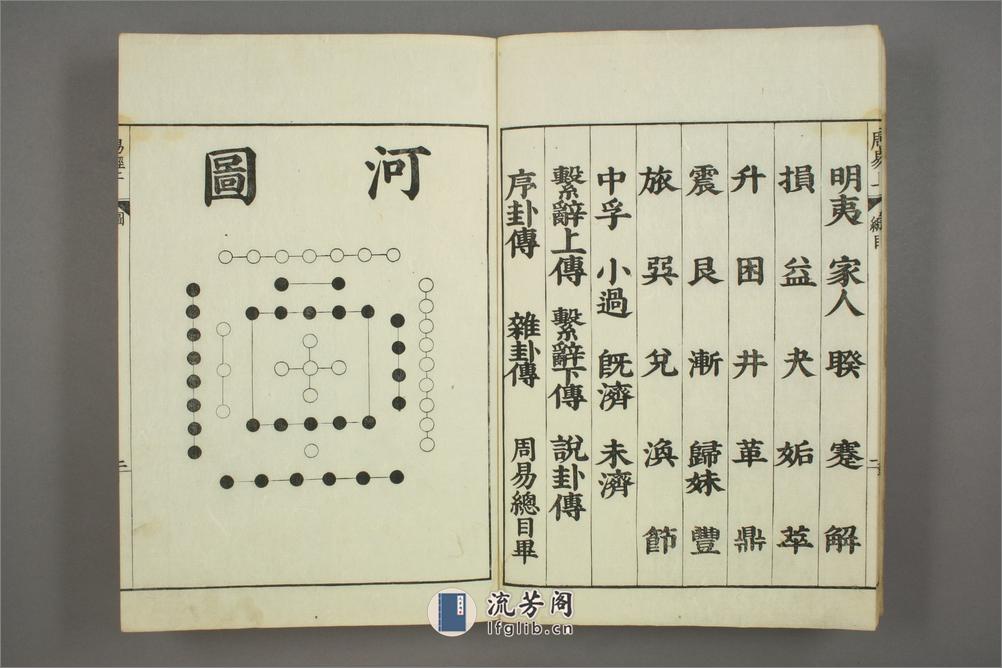 周易上 總目
明夷 家人 睽 蹇 解
損 益 夬 姤 萃
升 困 井 革 鼎
震 艮 漸 歸妹 豐
旅 巽 兌 渙 節
中孚 小過 既濟 未濟
繫辭上傳 繫辭下傳 說卦傳
序卦傳 雜卦傳 周易總目畢
河圖
流芳阁
lfglib.cn